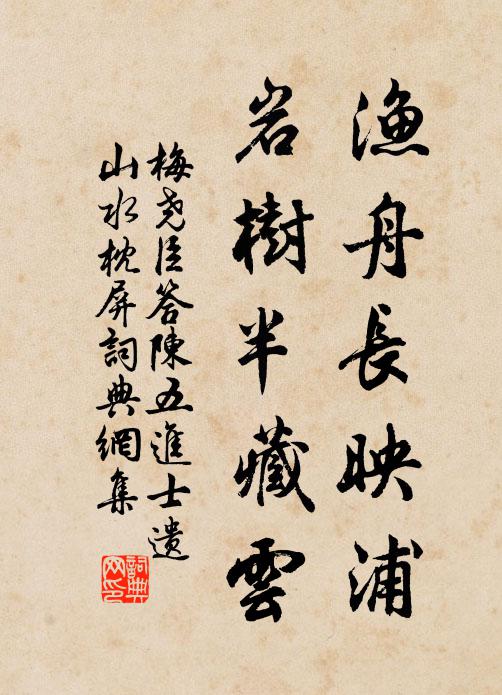 漁舟長映浦
岩樹半藏雲
梅堯臣答陳五進士遺
山水枕屏詞典網集
詞典
网印